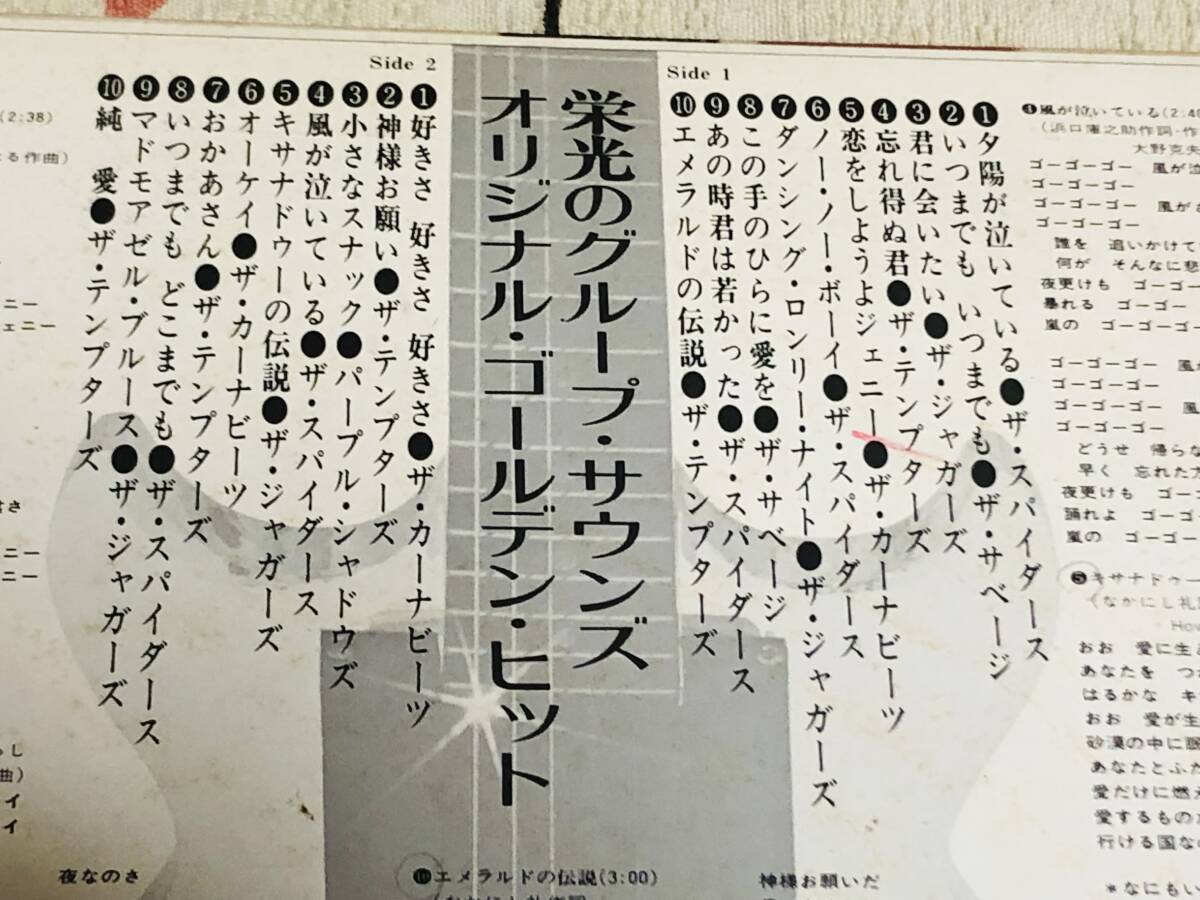 栄光のグループ・サウンズ
オリジナル・ゴールデン・ヒット
Side 1
❶夕陽が泣いている●ザ・スパイダース
❷いつまでも いつまでも●ザ・サベージ
❸君に会いたい●ザ・ジャガーズ
❹忘れ得ぬ君●ザ・テンプターズ
❺恋をしようよジェニー●ザ・カーナビーツ
❻ノー・ノー・ボーイ●ザ・スパイダース
❼ダンシング・ロンリー・ナイト●ザ・ジャガーズ
❽この手のひらに愛を●ザ・サベージ
❾あの時君は若かった●ザ・スパイダース
❿エメラルドの伝説●ザ・テンプターズ
Side 2
❶好きさ 好きさ 好きさ●ザ・カーナビーツ
❷神様お願い●ザ・テンプターズ
❸小さなスナック●パープル・シャドウズ
❹風が泣いている●ザ・スパイダース
❺キサナドゥーの伝説●ザ・ジャガーズ
❻オーケイ●ザ・カーナビーツ
❼おかあさん●ザ・テンプターズ
❽いつまでも どこまでも●ザ・スパイダース
❾マドモアゼル・ブルース●ザ・ジャガーズ
❿純 愛●ザ・テンプターズ
❹風が泣いている(2:4
(浜口庫之助作詞・作
大野克夫
ゴーゴーゴー 風が
ゴーゴーゴー
ゴーゴーゴー 風が
ゴーゴーゴー
誰を 追いかけて
何が そんなに悲
夜更けも ゴーゴー
暴れる ゴーゴー
嵐の ゴーゴーゴー
ゴーゴーゴー 風が
ゴーゴーゴー
ゴーゴーゴー 風
ゴーゴーゴー
どうせ 帰らな
早く 忘れた
夜更けも ゴーゴ
踊れよ ゴーゴ
嵐の ゴーゴー
❺キサナドゥー
(なかにし礼
How
おお 愛に生
あなたを つ
はるかな キ
おお 愛が生
砂漠の中に眠
あなたとふた
愛だけに燃え
愛するもの
行ける国な
*なにもい
(2:38)
る作曲)
ニー
ェニー
さ
ニー
ニー
し
曲)
イ
イ
夜なのさ
❿エメラルドの伝説(3:00)
神様お願いだ